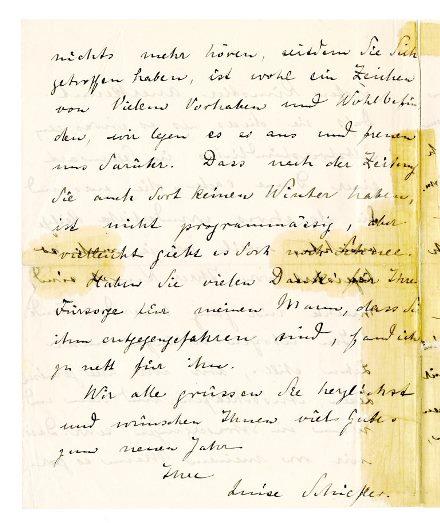 nichts mehr hören, seitdem Sie sich
getroffen haben, ist wohl ein Zeichen
von vielem Vorhaben und Wohlbefin
den, wir legen es so aus und freuen
uns darüber. Dass nach der Zeitung
Sie auch dort keinen Winter haben,
ist nicht programmässig, aber
vielleicht giebt es dort noch Schnee.
Haben Sie vielen Dank für Ihre
Fürsorge für meinen Mann, dass Sie
ihm entgegengefahren sind, fand ich
zu nett für ihn.
Wir alle grüssen Sie herzlichst
und wünschen Ihnen viel Gutes
zum neuen Jahr
Ihre
Luise Schiefler.